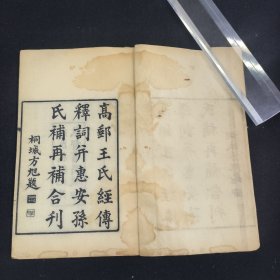 高郵王氏經傳
釋詞并惠安孫
氏補再補合刊
桐城方旭題